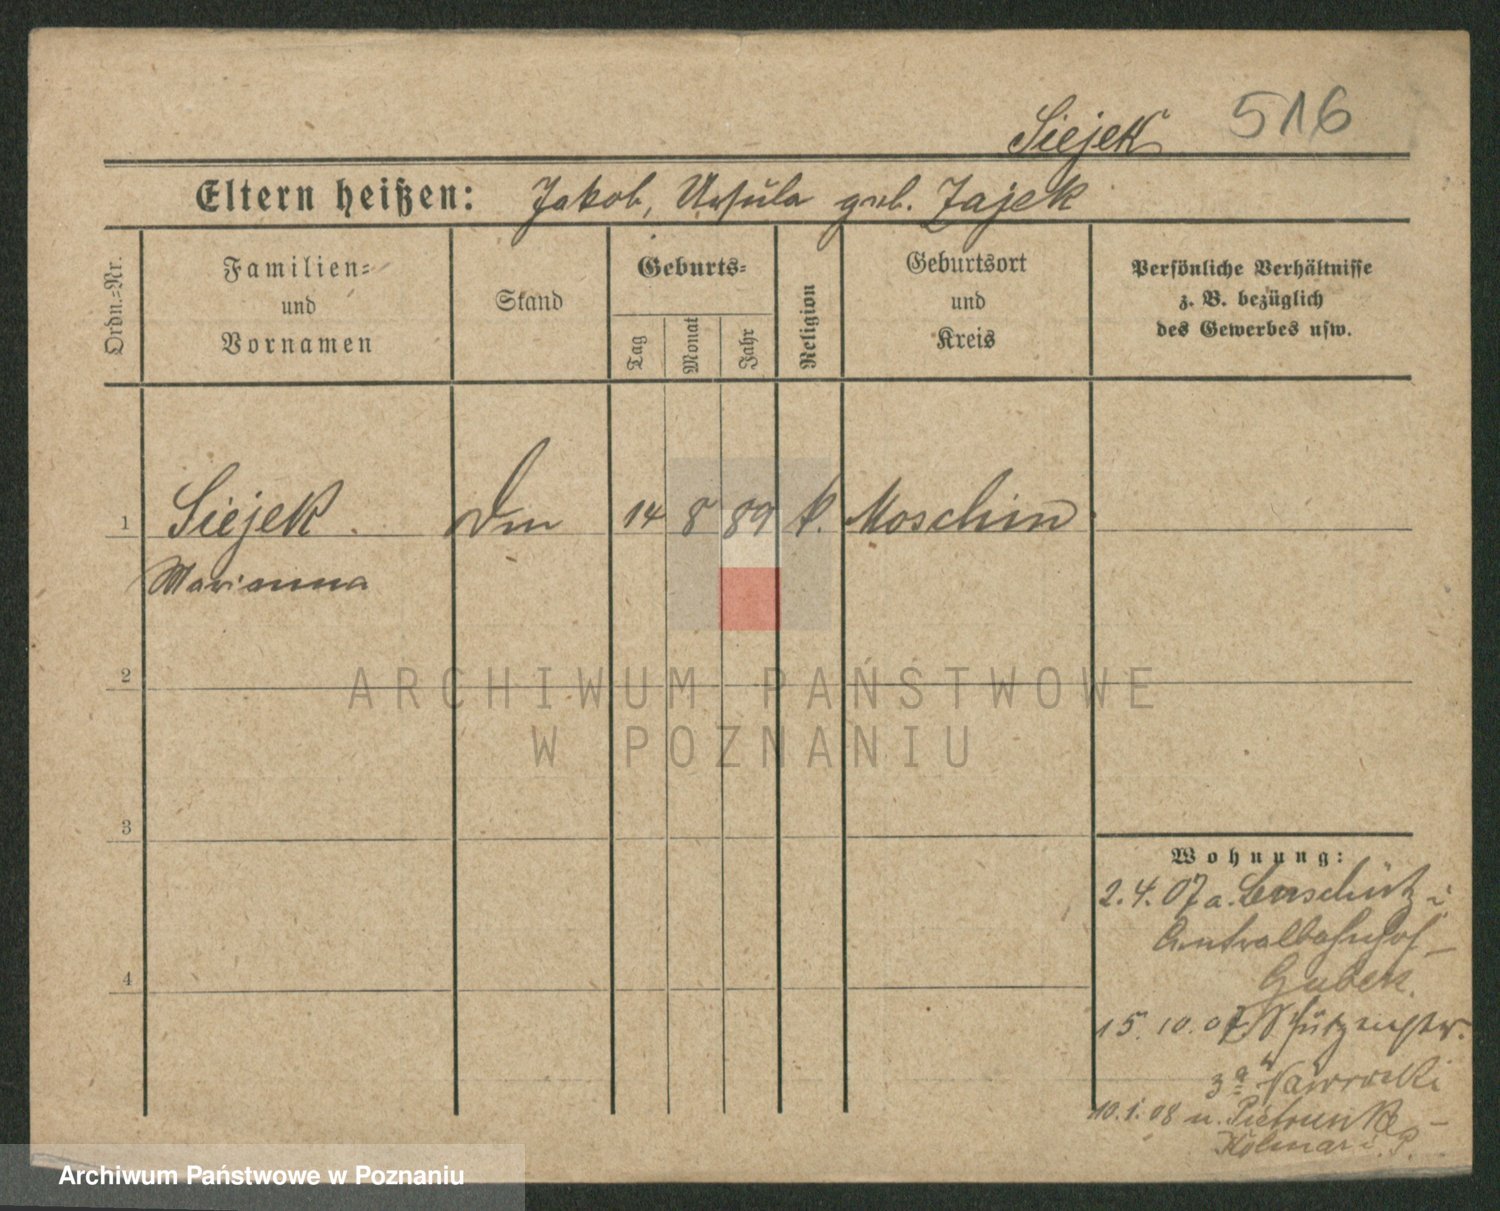 Siejek 516
Eltern heißen: Jakob, Ursula geb. Zajek
Ordn.=Nr.
Familien=
und
Vornamen
Stand
Geburts=
Tag
Monat
Jahr
Religion
Geburtsort
und
Kreis
Persönliche Verhältnisse
z. B. bezüglich
des Gewerbes usw.
1 Siejek. 14 8 89 k. Moschin
Marianna
2
3
4
Wohnung:
2.4.07 a.
Centralbahnhof
Guben.
15.10.07 Schützenstr.
3a Nawrocki
10.1.08 n.
Kolmar i. P.
ARCHIWUM PAŃSTWOWE
W POZNANIU
Archiwum Państwowe w Poznaniu